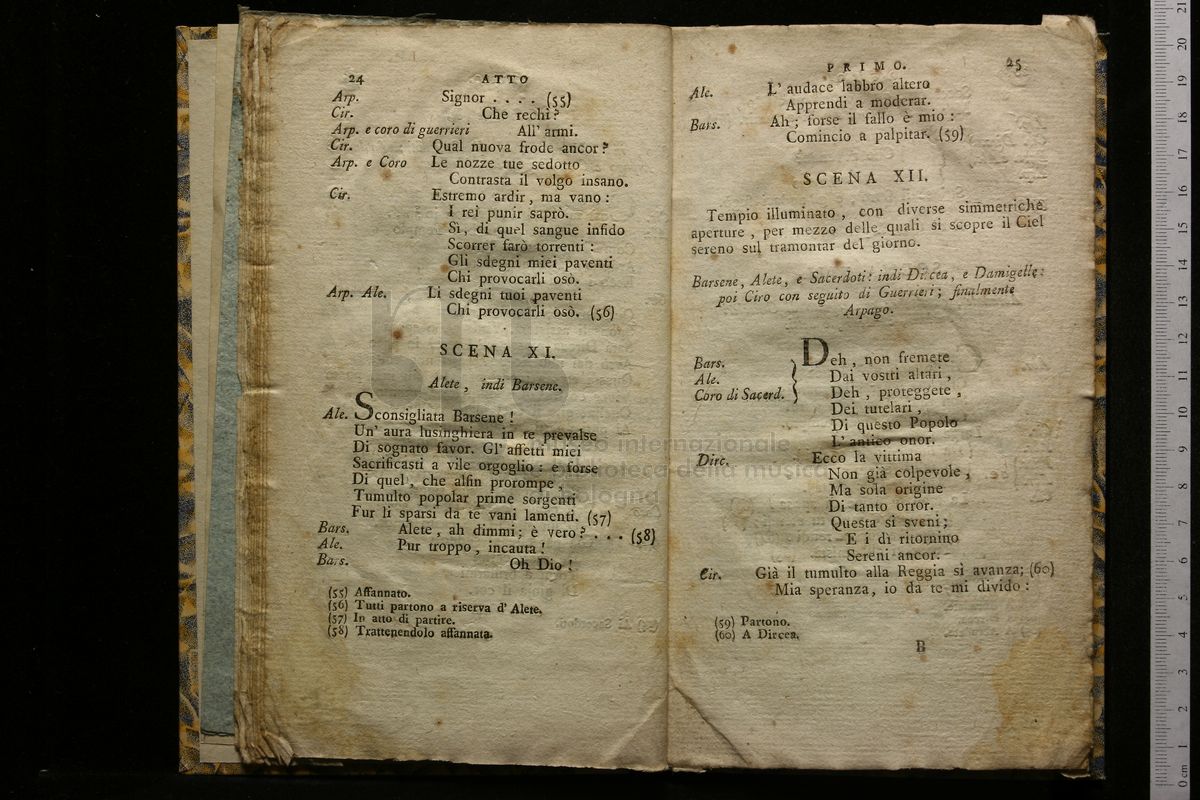 24 ATTO
Arp. Signor . . . . (55)
Cir. Che rechi?
Arp. e coro di guerrieri All' armi.
Cir. Qual nuova frode ancor?
Arp. e Coro Le nozze tue sedotto
Contrasta il volgo insano.
Cir. Estremo ardir, ma vano:
I rei punir saprò.
Sì, di quel sangue infido
Scorrer farò torrenti:
Gli sdegni miei paventi
Chi provocarli osò.
Arp. Ale. Li sdegni tuoi paventi
Chi provocarli osò. (56)
SCENA XI.
Alete, indi Barsene.
Ale. Sconsigliata Barsene!
Un' aura lusinghiera in te prevalse
Di sognato favor. Gl' affetti miei
Sacrificasti a vile orgoglio: e forse
Di quel, che alfin prorompe,
Tumulto popolar prime sorgenti
Fur li sparsi da te vani lamenti. (57)
Bars. Alete, ah dimmi; è vero? . . . (58)
Ale. Pur troppo, incauta!
Bars. Oh Dio!
(55) Affannato.
(56) Tutti partono a riserva d' Alete.
(57) In atto di partire.
(58) Trattenendolo affannata.
PRIMO. 25
Ale. L' audace labbro altero
Apprendi a moderar.
Bars. Ah; forse il fallo è mio:
Comincio a palpitar. (59)
SCENA XII.
Tempio illuminato, con diverse simmetriche
aperture, per mezzo delle quali si scopre il Ciel
sereno sul tramontar del giorno.
Barsene, Alete, e Sacerdoti: indi Dircea, e Damigelle:
poi Ciro con seguito di Guerrieri; finalmente
Arpago.
Bars. Deh, non fremete
Ale. Dai vostri altari,
Coro di Sacerd. Deh, proteggete,
Dei tutelari,
Di questo Popolo
L' antico onor.
Dirc. Ecco la vittima
Non già colpevole,
Ma sola origine
Di tanto orror.
Questa si sveni;
E i dì ritornino
Sereni ancor.
Cir. Già il tumulto alla Reggia si avanza; (60)
Mia speranza, io da te mi divido:
(59) Partono.
(60) A Dircea.
B
museo internazionale
biblioteca della musica
bologna